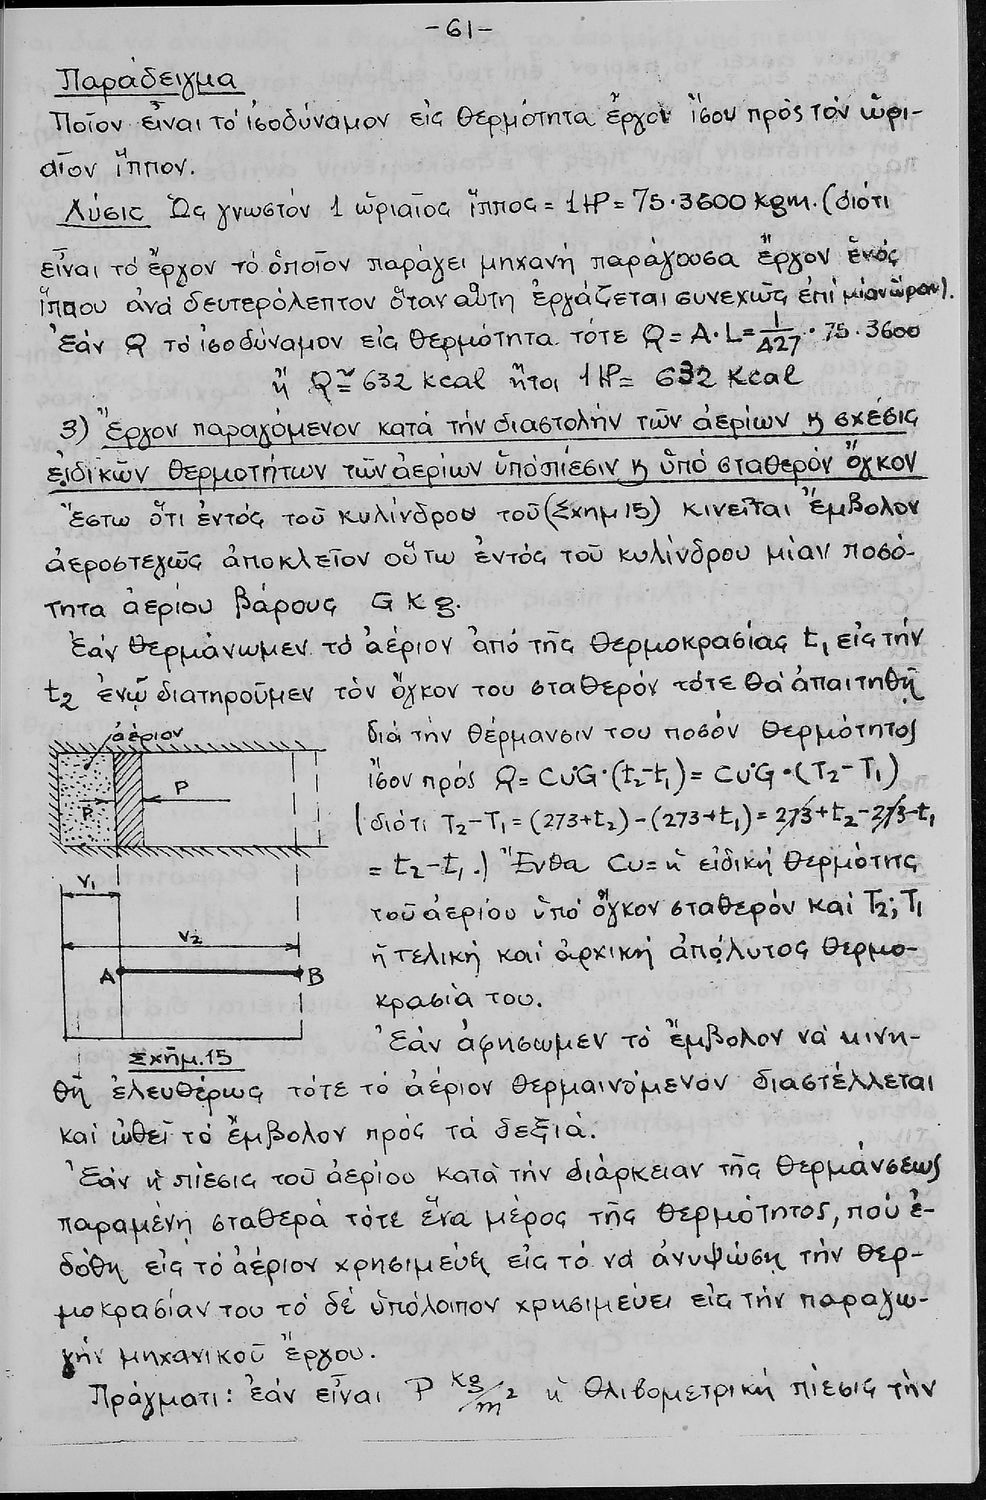 -61-
Παράδειγμα
Ποῖον εἶναι τό ἰσοδύναμον εἰς θερμότητα ἔργον ἴσον πρός τόν ὡρι-
αῖον ἵππον.
Λύσις Ὡς γνωστόν 1 ὡριαῖος ἵππος = 1HP = 75·3600 kgm. (διότι
εἶναι τό ἔργον τό ὁποῖον παράγει μηχανή παράγουσα ἔργον ἑνός
ἵππου ἀνά δευτερόλεπτον ὅταν αὕτη ἐργάζεται συνεχῶς ἐπί μίαν ὥραν).
Ἐάν Q τό ἰσοδύναμον εἰς θερμότητα τότε Q = A·L = 1/427 · 75·3600
ἤ Q ≃ 632 kcal ἤτοι 1HP = 632 Kcal
3) Ἔργον παραγόμενον κατά τήν διαστολήν τῶν ἀερίων ϗ σχέσις
εἰδικῶν θερμοτήτων τῶν ἀερίων ὑπό πίεσιν ϗ ὑπό σταθερόν ὄγκον
Ἔστω ὅτι ἐντός τοῦ κυλίνδρου τοῦ (Σχημ 15) κινεῖται ἔμβολον
ἀεροστεγῶς ἀποκλεῖον οὕτω ἐντός τοῦ κυλίνδρου μίαν ποσό-
τητα ἀερίου βάρους G Kg.
Ἐάν θερμάνωμεν τό ἀέριον ἀπό τῆς θερμοκρασίας t₁ εἰς τήν
t₂ ἐνῷ διατηροῦμεν τόν ὄγκον του σταθερόν τότε θά ἀπαιτηθῇ
διά τήν θέρμανσιν του ποσόν θερμότητος
ἴσον πρός Q = Cυ·G·(t₂-t₁) = Cυ·G·(T₂-T₁)
(διότι T₂-T₁ = (273+t₂)-(273+t₁) = 273+t₂-273-t₁
= t₂-t₁.) Ἔνθα Cυ = ἡ εἰδική θερμότης
τοῦ ἀερίου ὑπό ὄγκον σταθερόν καί T₂; T₁
ἡ τελική καί ἀρχική ἀπόλυτος θερμο-
κρασία του.
ἀέριον
P
P
V₁
V₂
A
B
Σχῆμ. 15
Ἐάν ἀφήσωμεν τό ἔμβολον νά κινη-
θῇ ἐλευθέρως τότε τό ἀέριον θερμαινόμενον διαστέλλεται
καί ὠθεῖ τό ἔμβολον πρός τά δεξιά.
Ἐάν ἡ πίεσις τοῦ ἀερίου κατά τήν διάρκειαν τῆς θερμάνσεως
παραμένῃ σταθερά τότε ἕνα μέρος τῆς θερμότητος, πού ἐ-
δόθη εἰς τό ἀέριον χρησιμεύει εἰς τό νά ἀνυψώσῃ τήν θερ-
μοκρασίαν του τό δέ ὑπόλοιπον χρησιμεύει εἰς τήν παραγω-
γήν μηχανικοῦ ἔργου.
Πράγματι: ἐάν εἶναι P Kg/m² ἡ θλιβομετρική πίεσις τήν